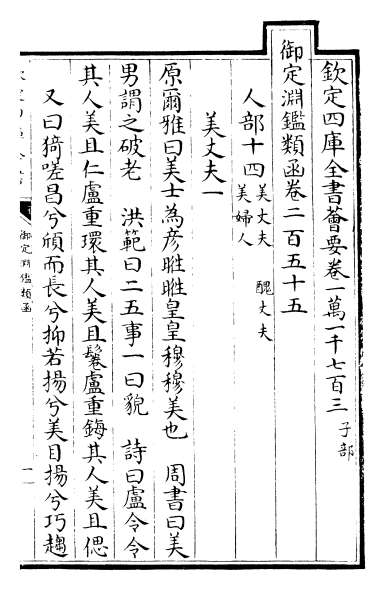 欽定四庫全書薈要卷一萬一千七百三 子部
御定淵鑑類函卷二百五十五
人部十四 美丈夫 醜丈夫
美婦人
美丈夫一
原爾雅曰美士為彥旺旺皇皇穆穆美也 周書曰美
男謂之破老 洪範曰二五事一曰貌 詩曰盧令令
其人美且仁盧重環其人美且鬈盧重鋂其人美且偲
又曰猗嗟昌兮頎而長兮抑若揚兮美目揚兮巧趨
御定淵鑑類函
一